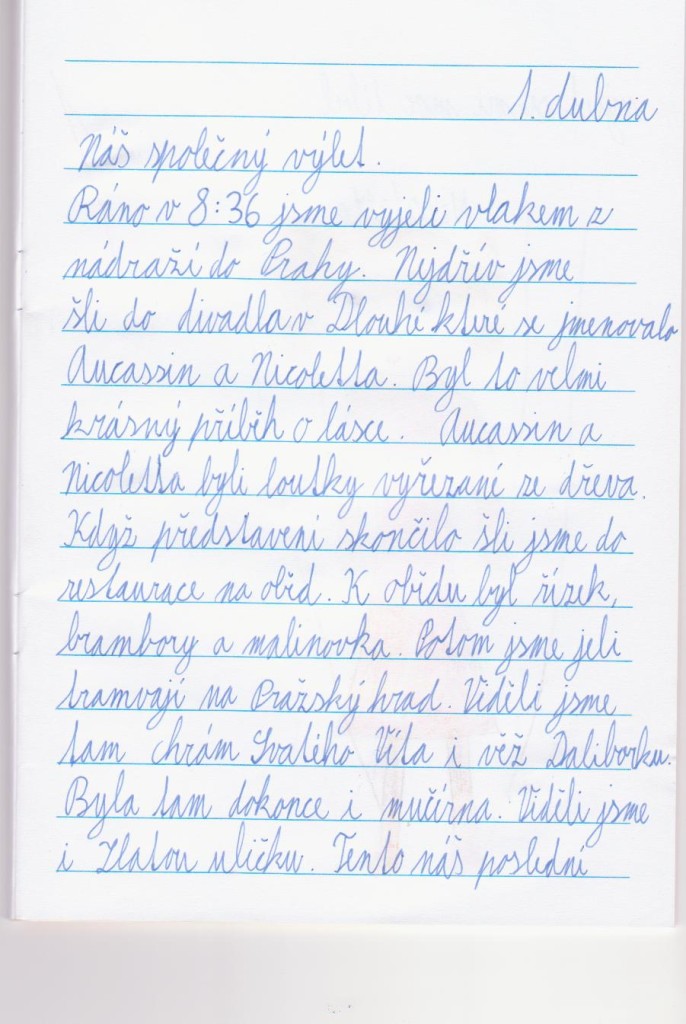 1. dubna
Náš společný výlet.
Ráno v 8:36 jsme vyjeli vlakem z
nádraží do Prahy. Nejdřív jsme
šli do divadla v Dlouhé které se jmenovalo
Aucassin a Nicoletta. Byl to velmi
krásný příběh o lásce. Aucassin a
Nicoletta byli loutky vyřezané ze dřeva.
Když představení skončilo šli jsme do
restaurace na oběd. K obědu byl řízek,
brambory a malinovka. Potom jsme jeli
tramvají na Pražský hrad. Viděli jsme
tam chrám Svatého Víta i věž Daliborku.
Byla tam dokonce i mučírna. Viděli jsme
i Zlatou uličku. Tento náš poslední